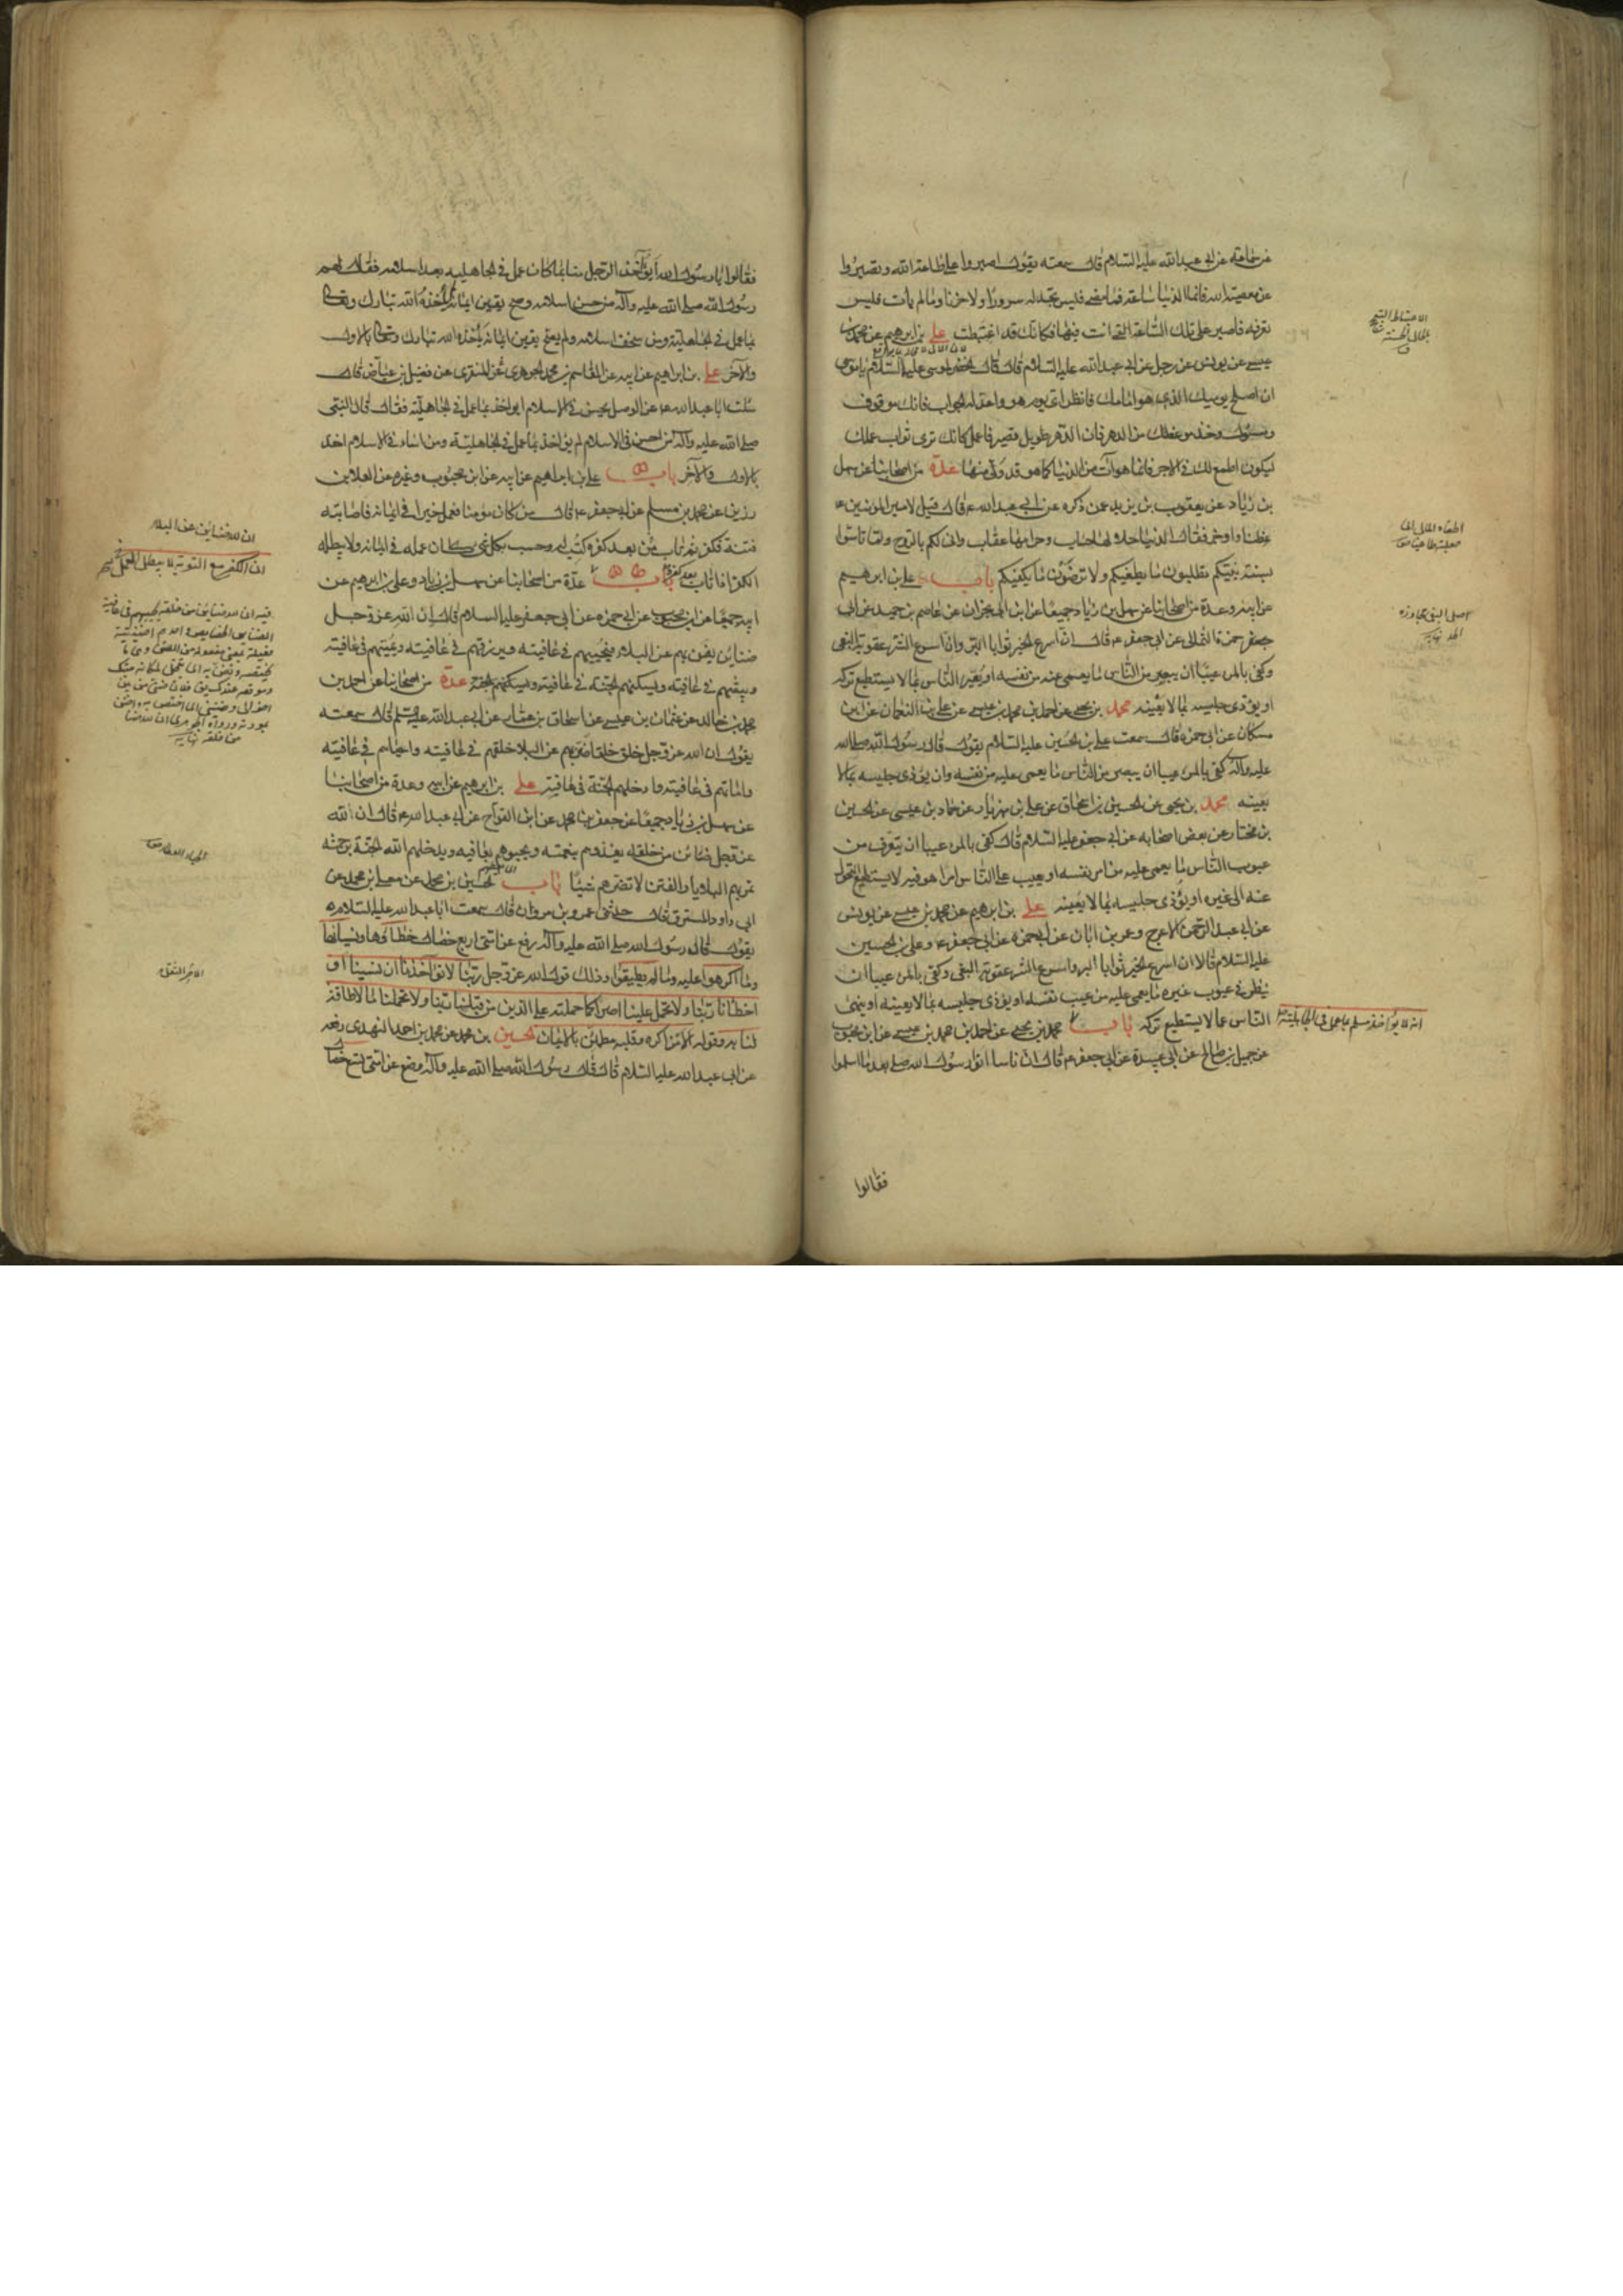 عن سماعة عن ابى عبد الله عليه السلام قال سمعته يقول اصبروا على طاعة الله وتصبروا
عن معصية الله فانما الدنيا ساعة فما مضى فليس تجد له سرورا ولا حزنا وما لم يأت فليس
تعرفه فاصبر على تلك الساعة التى انت فيها فكانك قد اغتبطت على بن ابرهيم عن محمد بن
عيسى عن يونس عن رجل عن ابى عبد الله عليه السلام قال قال الخضر لموسى عليه السلام يا موسى
ان اصلح يوميك الذى هو امامك فانظر اى يوم هو واعد له الجواب فانك موقوف
ومسئول وخذ موعظتك من الدهر فان الدهر طويل قصير فاعمل كانك ترى ثواب عملك
ليكون اطمع لك فى الاجر فانما هو آت من الدنيا كما هو قد ولى منها عدة من اصحابنا عن سهل
بن زياد عن يعقوب بن يزيد عمن ذكره عن ابى عبد الله ع قال قيل لامير المؤمنين ع
عظنا واوجز فقال الدنيا حلالها حساب وحرامها عقاب وانى لكم بالروح ولما تأسوا
بسنة نبيكم تطلبون ما يطغيكم ولا ترضون ما يكفيكم باب على بن ابرهيم
عن ابيه وعدة من اصحابنا عن سهل بن زياد جميعا عن ابن ابى نجران عن عاصم بن حميد عن ابى
حمزة الثمالى عن ابى جعفر ع قال ان اسرع الخير ثوابا البر وان اسرع الشر عقوبة البغى
وكفى بالمرء عيبا ان يبصر من الناس ما يعمى عنه من نفسه او يعير الناس بما لا يستطيع تركه
او يؤذى جليسه بما لا يعنيه محمد بن يحيى عن احمد بن محمد بن عيسى عن على بن النعمان عن ابن
مسكان عن ابى حمزة قال سمعت على بن الحسين عليه السلام يقول قال رسول الله صلى الله
عليه وآله كفى بالمرء عيبا ان يبصر من الناس ما يعمى عليه من نفسه وان يؤذى جليسه بما لا
يعنيه محمد بن يحيى عن الحسين بن اسحاق عن على بن مهزيار عن حماد بن عيسى عن الحسين
بن مختار عن بعض اصحابه عن ابى جعفر عليه السلام قال كفى بالمرء عيبا ان يتعرف من
عيوب الناس ما يعمى عليه من امر نفسه او يعيب على الناس امرا هو فيه لا يستطيع التحول
عنه الى غيره او يؤذى جليسه بما لا يعنيه على بن ابرهيم عن محمد بن عيسى عن يونس
عن ابى عبد الرحمن الاعرج وعمر بن ابان عن ابى حمزة عن ابى جعفر ع وعلى بن الحسين
عليه السلام قالا ان اسرع الخير ثوابا البر واسرع الشر عقوبة البغى وكفى بالمرء عيبا ان
ينظر فى عيوب غيره ما يعمى عليه من عيب نفسه او يؤذى جليسه بما لا يعنيه او ينهى
الناس عما لا يستطيع تركه باب محمد بن يحيى عن احمد بن محمد بن عيسى عن ابن محبوب
عن جميل بن صالح عن ابى عبيدة عن ابى جعفر ع قال ان ناسا اتوا رسول الله صلى بعد ما اسلموا
فقالوا
انه لا يؤاخذ مسلم بما عمل فى الجاهلية
فقالوا يا رسول الله ايؤخذ الرجل منا بما كان عمل فى الجاهلية بعد اسلامه فقال لهم
رسول الله صلى الله عليه وآله من حسن اسلامه وصح يقين ايمانه لم يأخذه الله تبارك وتعالى
بما عمل فى الجاهلية ومن سخف اسلامه ولم يصح يقين ايمانه يأخذه الله تبارك وتعالى بالاول
والآخر على بن ابراهيم عن ابيه عن القاسم بن محمد الجوهرى عن المنقرى عن فضيل بن عياض قال
سئلت ابا عبد الله ع عن الرجل يحسن فى الاسلام ايؤاخذ بما عمل فى الجاهلية فقال قال النبى
صلى الله عليه وآله من احسن فى الاسلام لم يؤاخذ بما عمل فى الجاهلية ومن اساء فى الاسلام اخذ
بالاول والآخر باب على بن ابراهيم عن ابيه عن ابن محبوب وغيره عن العلا بن
رزين عن محمد بن مسلم عن ابى جعفر ع قال من كان مؤمنا فعمل خيرا فى ايمانه فاصابته
فتنة فكفر ثم تاب من بعد كفره كتب له وحسب بكل شئ كان عمله فى ايمانه ولا يبطله
الكفر اذا تاب بعد كفره باب عدة من اصحابنا عن سهل بن زياد وعلى بن ابرهيم عن
ابيه جميعا عن ابن محبوب عن ابى حمزة عن ابى جعفر عليه السلام قال ان الله عز وجل
ضناين يضن بهم عن البلاء فيحييهم فى عافيته ويرزقهم فى عافيته ويميتهم فى عافيته
ويبعثهم فى عافيته ويسكنهم الجنة فى عافيته عدة من اصحابنا عن احمد بن
محمد بن خالد عن عثمان بن عيسى عن اسحاق بن عمار عن ابى عبد الله عليه السلم قال سمعته
يقول ان الله عز وجل خلق خلقا ضن بهم عن البلا خلقهم فى عافيته واحياهم فى عافيته
واماتهم فى عافيته وادخلهم الجنة فى عافيته على بن ابرهيم عن ابيه وعدة من اصحابنا
عن سهل بن زياد جميعا عن جعفر بن محمد عن ابن القداح عن ابى عبد الله ع قال ان الله
عز وجل ضنائن من خلقه يغذوهم بنعمته ويحبوهم بعافيته ويدخلهم الله الجنة برحمته
تمر بهم البلايا والفتن لا تضرهم شيئا باب الحسين بن محمد عن معلى بن محمد عن
ابى داود المسترق قال حدثنى عمرو بن مروان قال سمعت ابا عبد الله عليه السلام
يقول قال رسول الله صلى الله عليه وآله رفع عن امتى اربع خصال خطاؤها ونسيانها
وما اكرهوا عليه وما لم يطيقوا وذلك قول الله عز وجل ربنا لا تؤاخذنا ان نسينا او
اخطأنا ربنا ولا تحمل علينا اصرا كما حملته على الذين من قبلنا ربنا ولا تحملنا ما لا طاقة
لنا به وقوله الا من اكره وقلبه مطمئن بالايمان الحسين بن محمد عن محمد بن احمد النهدى رفعه
عن ابى عبد الله عليه السلام قال قال رسول الله صلى الله عليه وآله وضع عن امتى تسع خصال
ان لله ضنائن عن البلاء
ان الكفر مع التوبة لا يبطل العمل